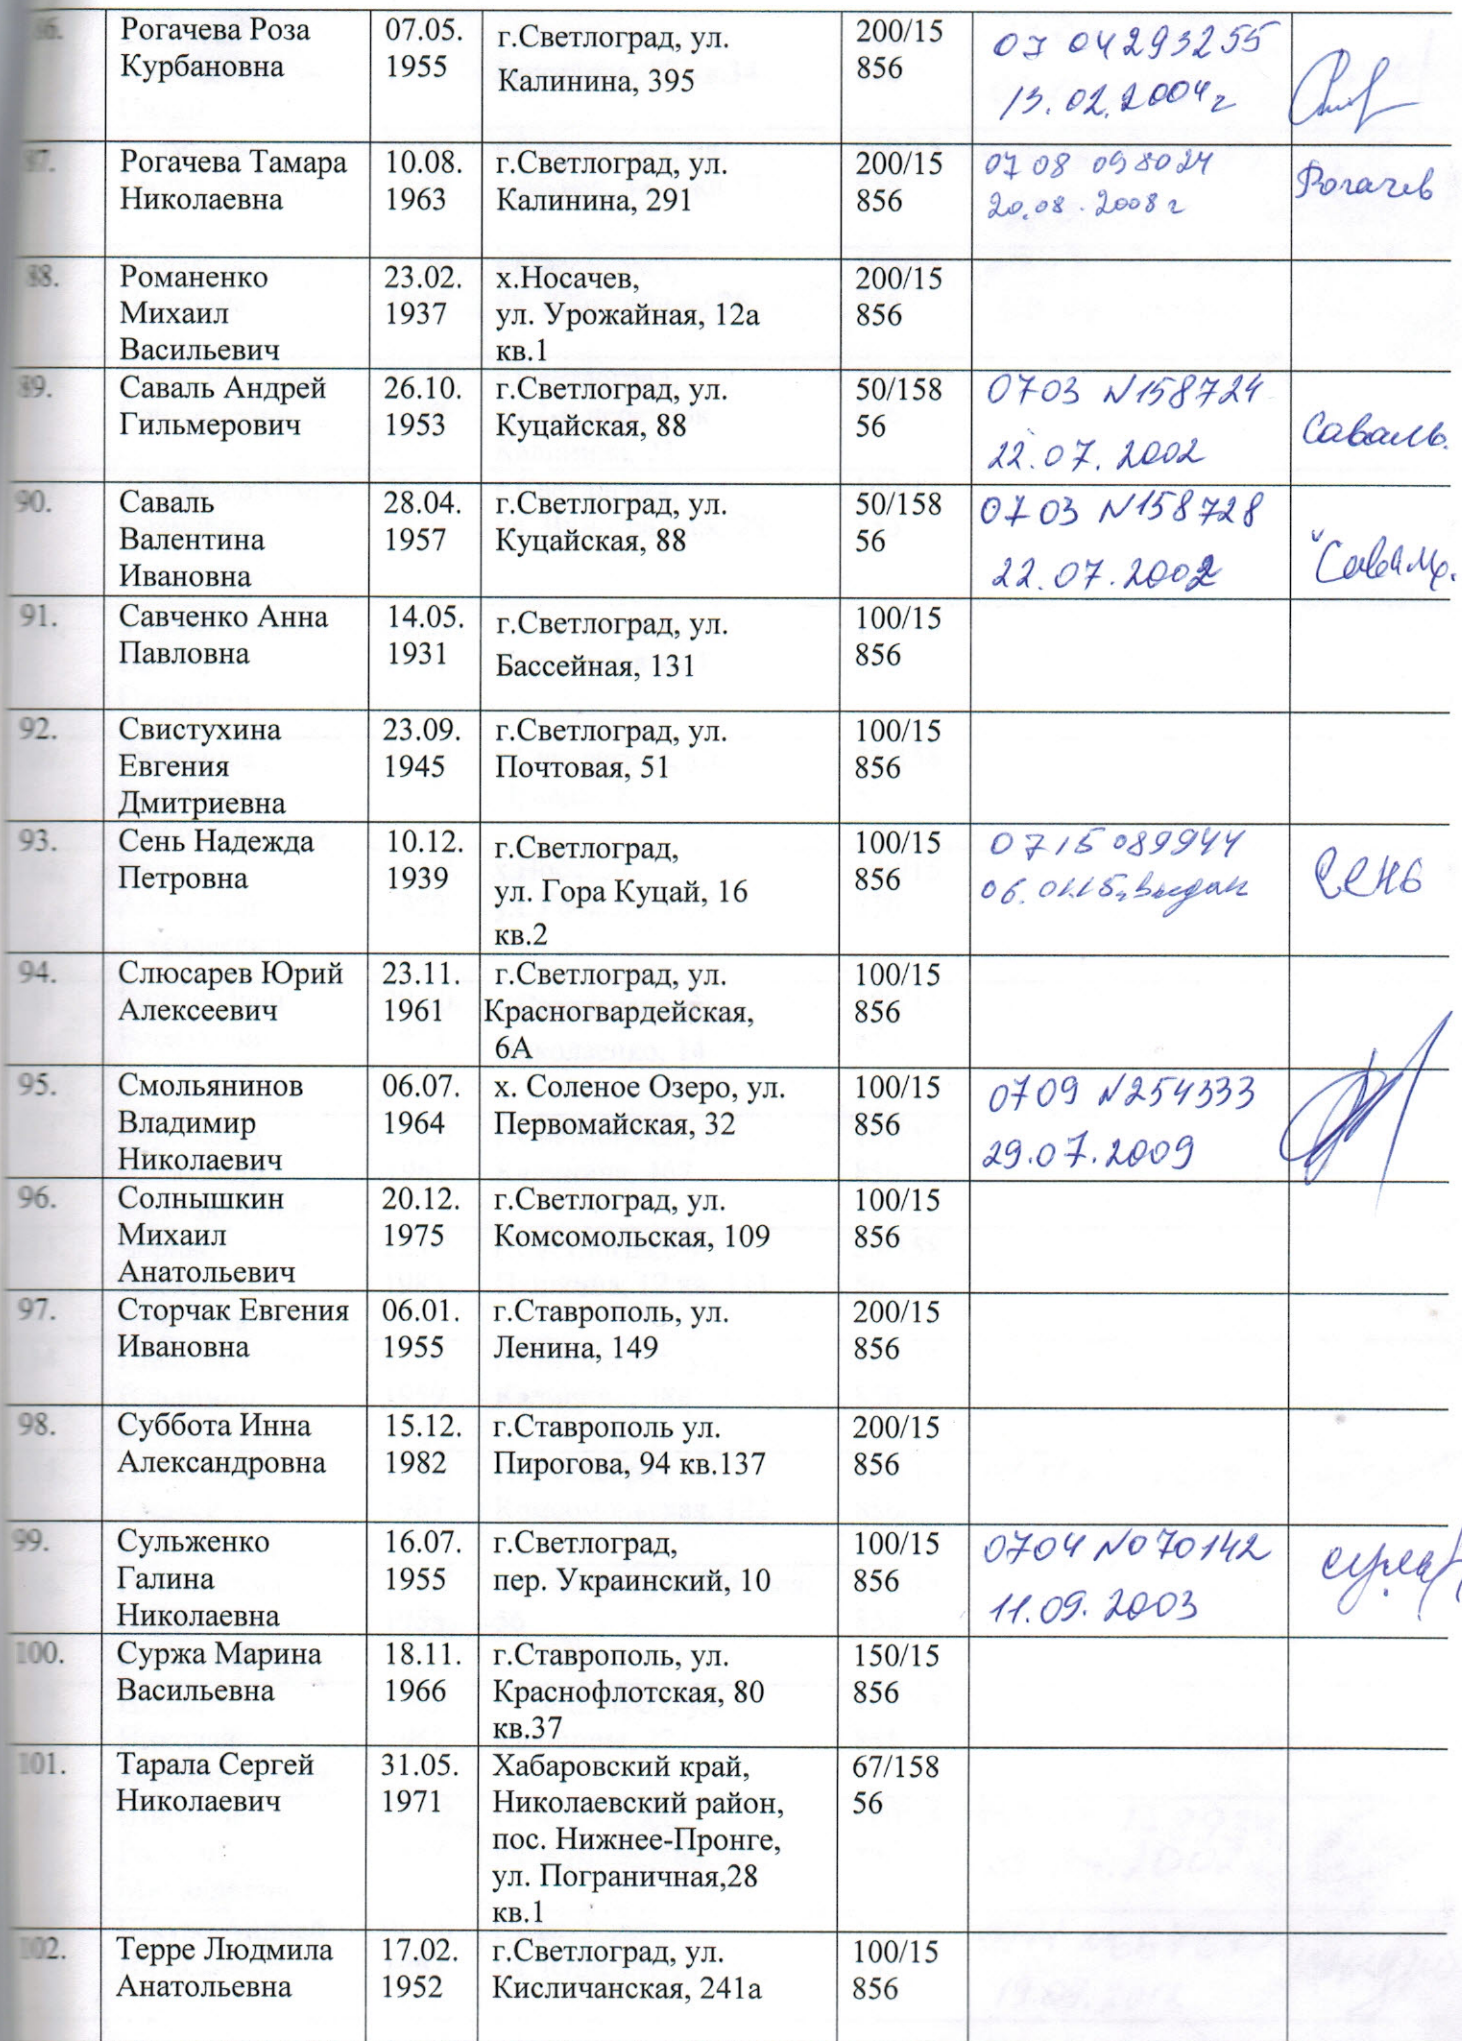 86.
Рогачева Роза
Курбановна
07.05.
1955
г.Светлоград, ул.
Калинина, 395
200/15
856
07 04 293255
13.02.2004 г
87.
Рогачева Тамара
Николаевна
10.08.
1963
г.Светлоград, ул.
Калинина, 291
200/15
856
07 08 098024
20.08.2008 г
Рогачев
88.
Романенко
Михаил
Васильевич
23.02.
1937
х.Носачев,
ул. Урожайная, 12а
кв.1
200/15
856
89.
Саваль Андрей
Гильмерович
26.10.
1953
г.Светлоград, ул.
Куцайская, 88
50/158
56
0703 N158724
22.07.2002
Саваль.
90.
Саваль
Валентина
Ивановна
28.04.
1957
г.Светлоград, ул.
Куцайская, 88
50/158
56
0703 N158728
22.07.2002
91.
Савченко Анна
Павловна
14.05.
1931
г.Светлоград, ул.
Бассейная, 131
100/15
856
92.
Свистухина
Евгения
Дмитриевна
23.09.
1945
г.Светлоград, ул.
Почтовая, 51
100/15
856
93.
Сень Надежда
Петровна
10.12.
1939
г.Светлоград,
ул. Гора Куцай, 16
кв.2
100/15
856
0715 089944
Сень
94.
Слюсарев Юрий
Алексеевич
23.11.
1961
г.Светлоград, ул.
Красногвардейская,
6А
100/15
856
95.
Смольянинов
Владимир
Николаевич
06.07.
1964
х. Соленое Озеро, ул.
Первомайская, 32
100/15
856
0709 N254333
29.07.2009
96.
Солнышкин
Михаил
Анатольевич
20.12.
1975
г.Светлоград, ул.
Комсомольская, 109
100/15
856
97.
Сторчак Евгения
Ивановна
06.01.
1955
г.Ставрополь, ул.
Ленина, 149
200/15
856
98.
Суббота Инна
Александровна
15.12.
1982
г.Ставрополь ул.
Пирогова, 94 кв.137
200/15
856
99.
Сульженко
Галина
Николаевна
16.07.
1955
г.Светлоград,
пер. Украинский, 10
100/15
856
0704 N070142
11.09.2003
100.
Суржа Марина
Васильевна
18.11.
1966
г.Ставрополь, ул.
Краснофлотская, 80
кв.37
150/15
856
101.
Тарала Сергей
Николаевич
31.05.
1971
Хабаровский край,
Николаевский район,
пос. Нижнее-Пронге,
ул. Пограничная,28
кв.1
67/158
56
102.
Терре Людмила
Анатольевна
17.02.
1952
г.Светлоград, ул.
Кисличанская, 241а
100/15
856